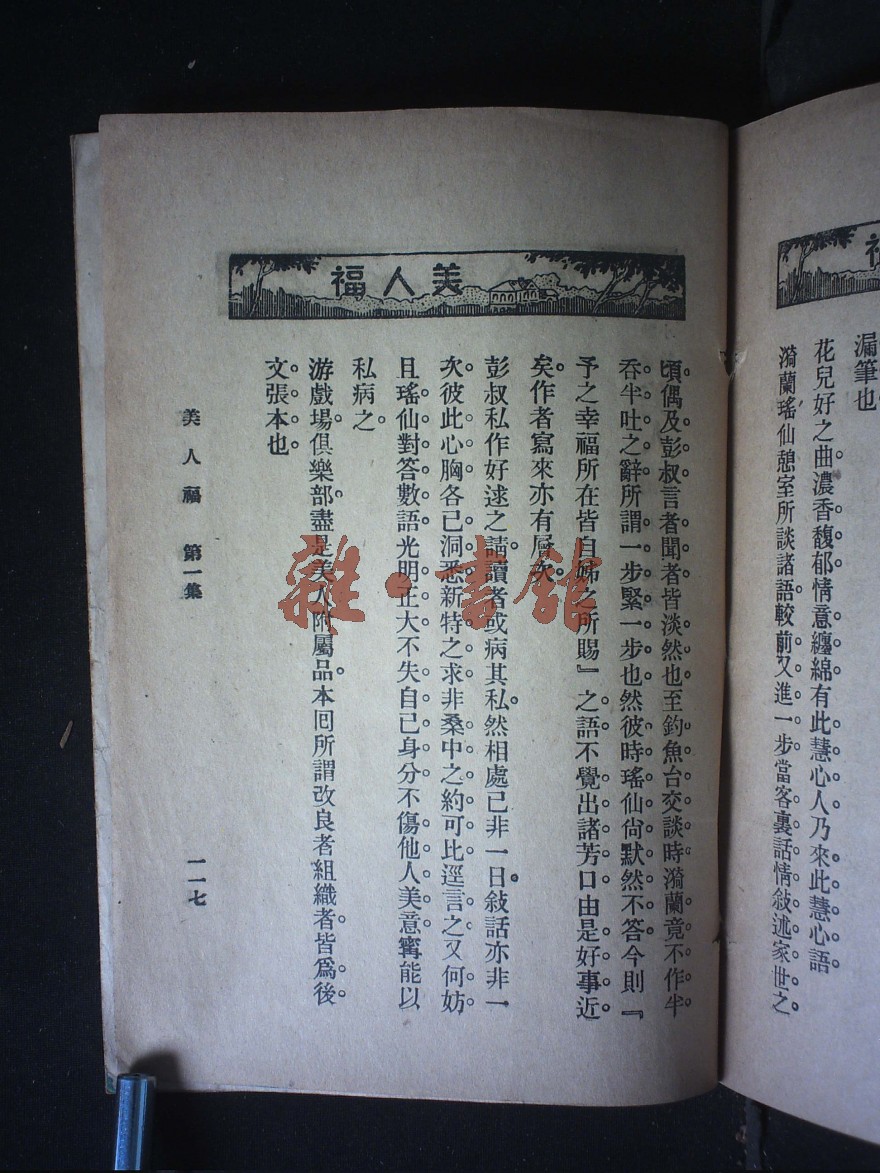 漏筆也
花兒好之曲濃香馥郁情意纏綿有此慧心人乃來此慧心語
漪蘭瑤仙憩室所談諸語較前又進一步當客裏話情敍述家世之
美人福
頃偶及彭叔言者聞者皆淡然也至釣魚台交談時漪蘭竟不作半
吞半吐之辭所謂一步緊一步也然彼時瑤仙尙默然不答今則『
予之幸福所在皆自姊之所賜』之語不覺出諸芳口由是好事近
矣作者寫來亦有層次
彭叔私作好逑之請讀者或病其私然相處已非一日敍話亦非一
次彼此心胸各已洞悉新特之求非桑中之約可比逕言之又何妨
且瑤仙對答數語光明正大不失自己身分不傷他人美意寗能以
私病之
游戲場俱樂部盡是美人附屬品本回所謂改良者組織者皆爲後
文張本也
美人福 第一集
一一七
雜·書館